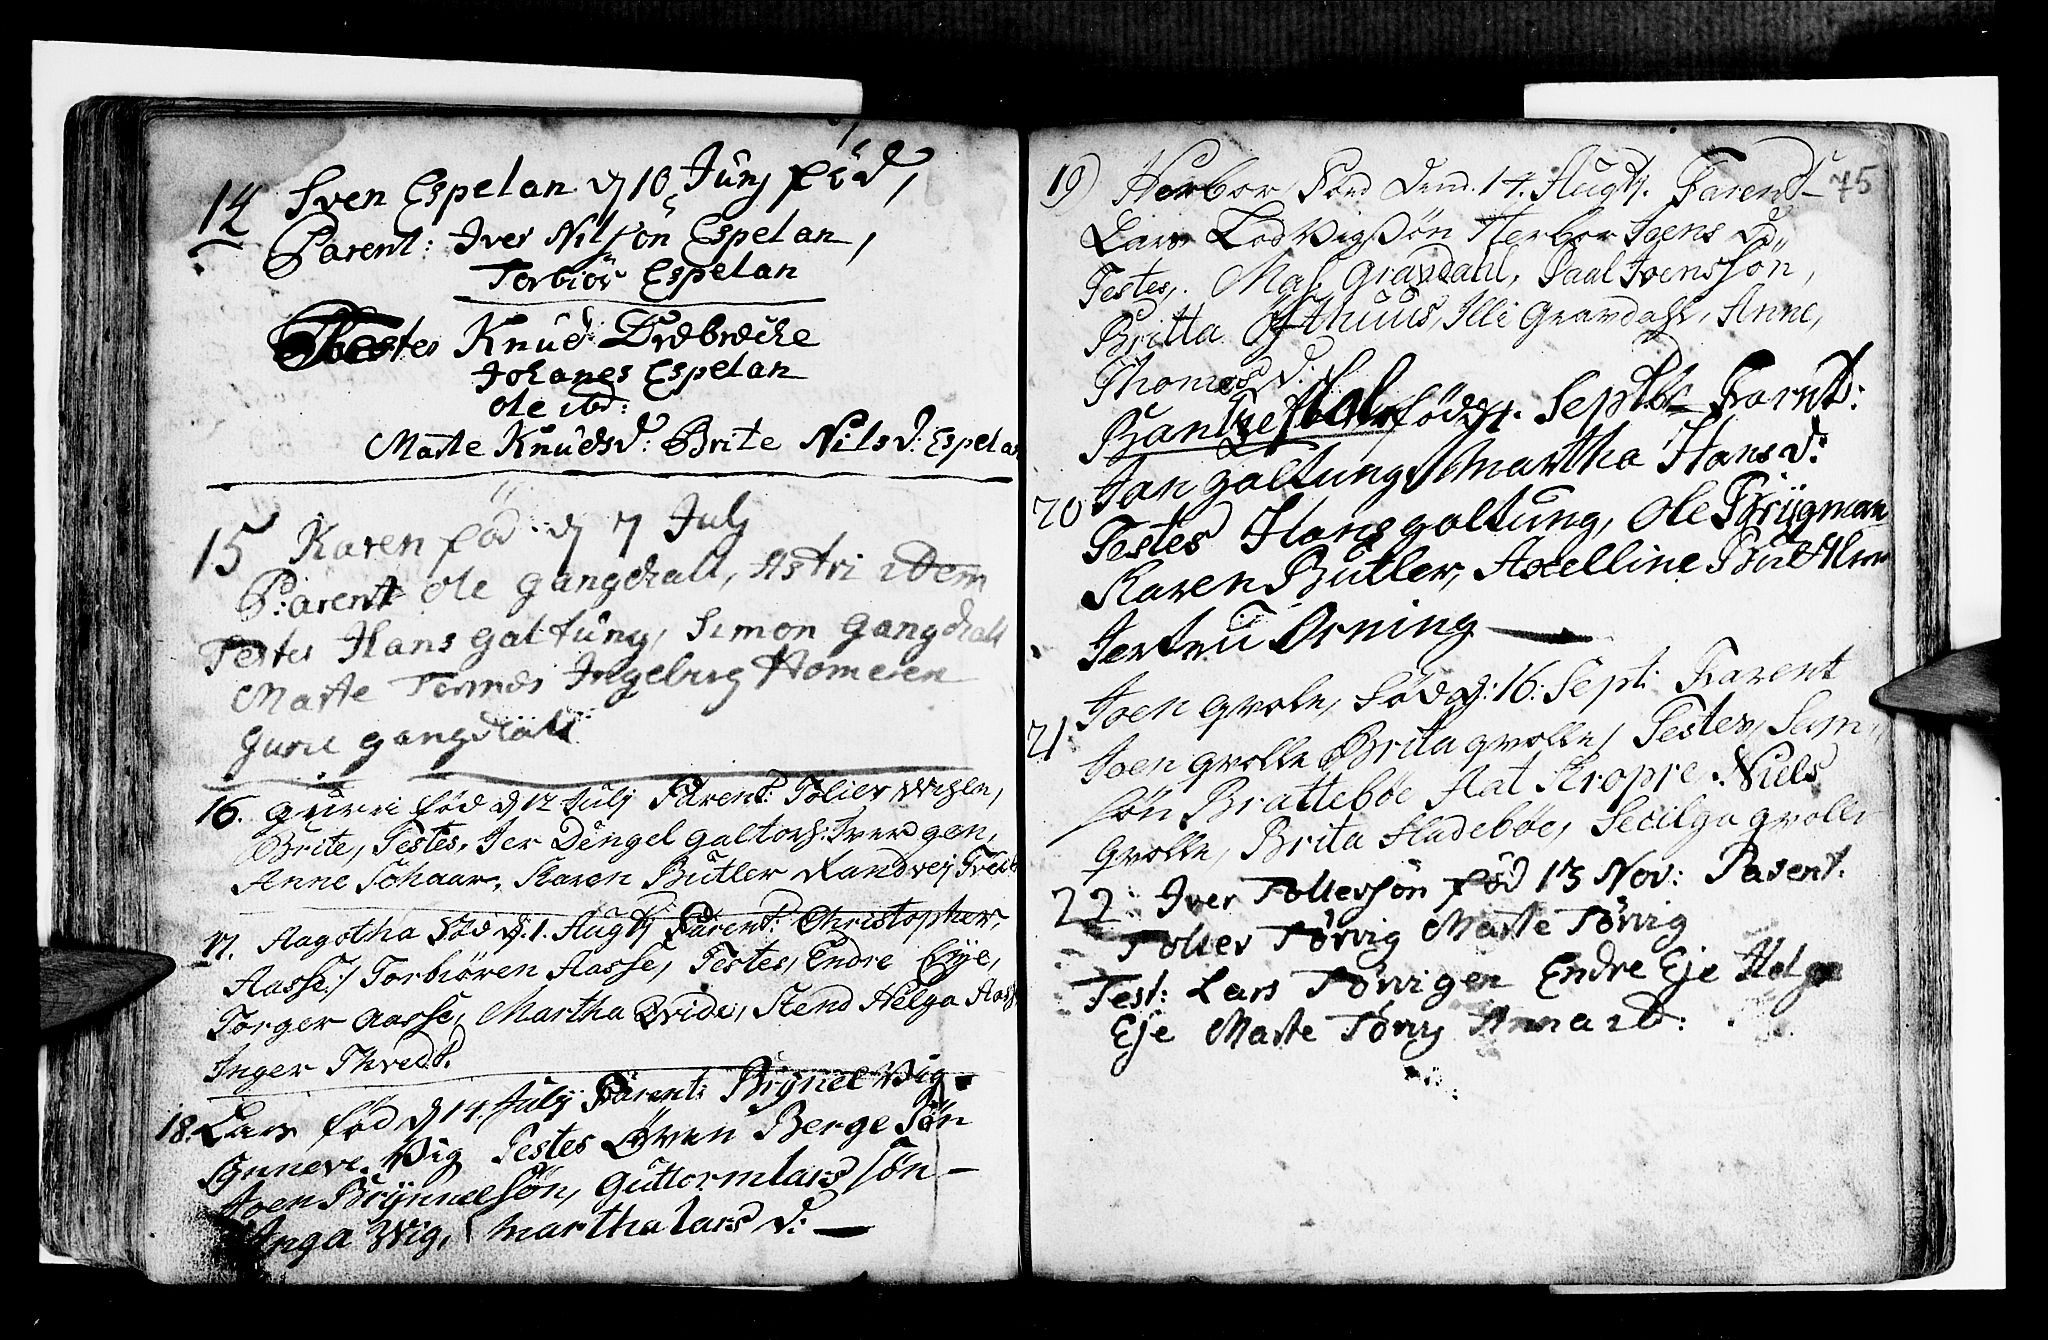 14 Sven Espelan d 10 Junj föd,
Parent: Iver Nilsön Espelan,
Torbiör Espelan
Testes Knud Ødebrecke
Johanes Espelan
Ole ibd:
Marte Knudsd: Brite Nilsd: Espelan
15 Karen föd d 7 Julj
Parent Ole gangdall, Astri idem
Testes Hans galtung, Simon gangdall
Marte Tornes Ingeborg
Gurie gangdall
16. gurri föd d 12 Julj Parent: Tolier
Brite, Testes, Iver
Anne Karen Butler Randvej
17. Aagotha död d. 1. Augtj Parent: Christopher
Aasse / Torbiören Aasse, Testes, Endre Eye,
Torger aasse, Martha Qvide, Stend Helga Aass
Inger Thvedt.
18. Lars föd d 14 Julij Parent: Brynel Vig
Synneve Vig Testes Berge Sön
Joen Brynnelsön, Guttorm lars sön
Inga Wig, Martha lars d:
75
19) Herbor föed dend. 14. Augtj. Parent
Lars LodvigSön Herbor Joens d,,
Testes, Mal. Gravdahl, Paal Joenssön,
Britta Østhuus, Illi Gravdahl, Anne,
Thomes d.
föd d 1. Septbr Parent:
20 Jan galtung, Martha Hans d:
Testes Hans galtung, Ole Brygman
Karen Butler, Axelline
Jertru Orning
Joen qvole, föd d: 16: Sept: Parent
21 Joen qvolle Brita qvolle, Testes, Sam,,
sön Brattebøe Aat Niels
qvolle, Brita Hadebøe, Secilga qvolle
22 Iver Tollersön föd 13 Nov: Parent.
Toller Tørvig Marte Tørvig
Test: Lars Tørvigen Endre Eje Helge
Eje Marte Tørvig Anna ibd: